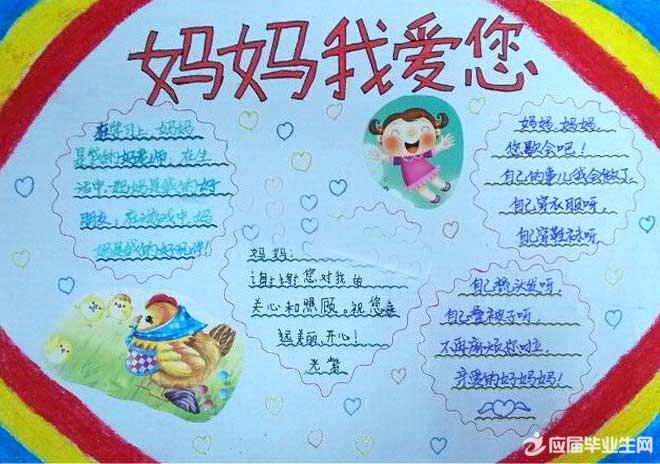 妈妈我爱您
在学习上,妈妈
是我的好老师,在生
活中,妈妈是我的好
朋友,在游戏中,妈
妈是我的好玩伴!
妈妈:
谢谢您对我的
关心和照顾。祝您永
远美丽、开心!
妈妈,妈妈,
您歇会吧!
自己的事儿我会做了,
自己穿衣服呀,
自己穿鞋袜呀,
自己梳头发呀,
自己叠被子呀,
不再麻烦您啦,
亲爱的好妈妈!
应届毕业生网